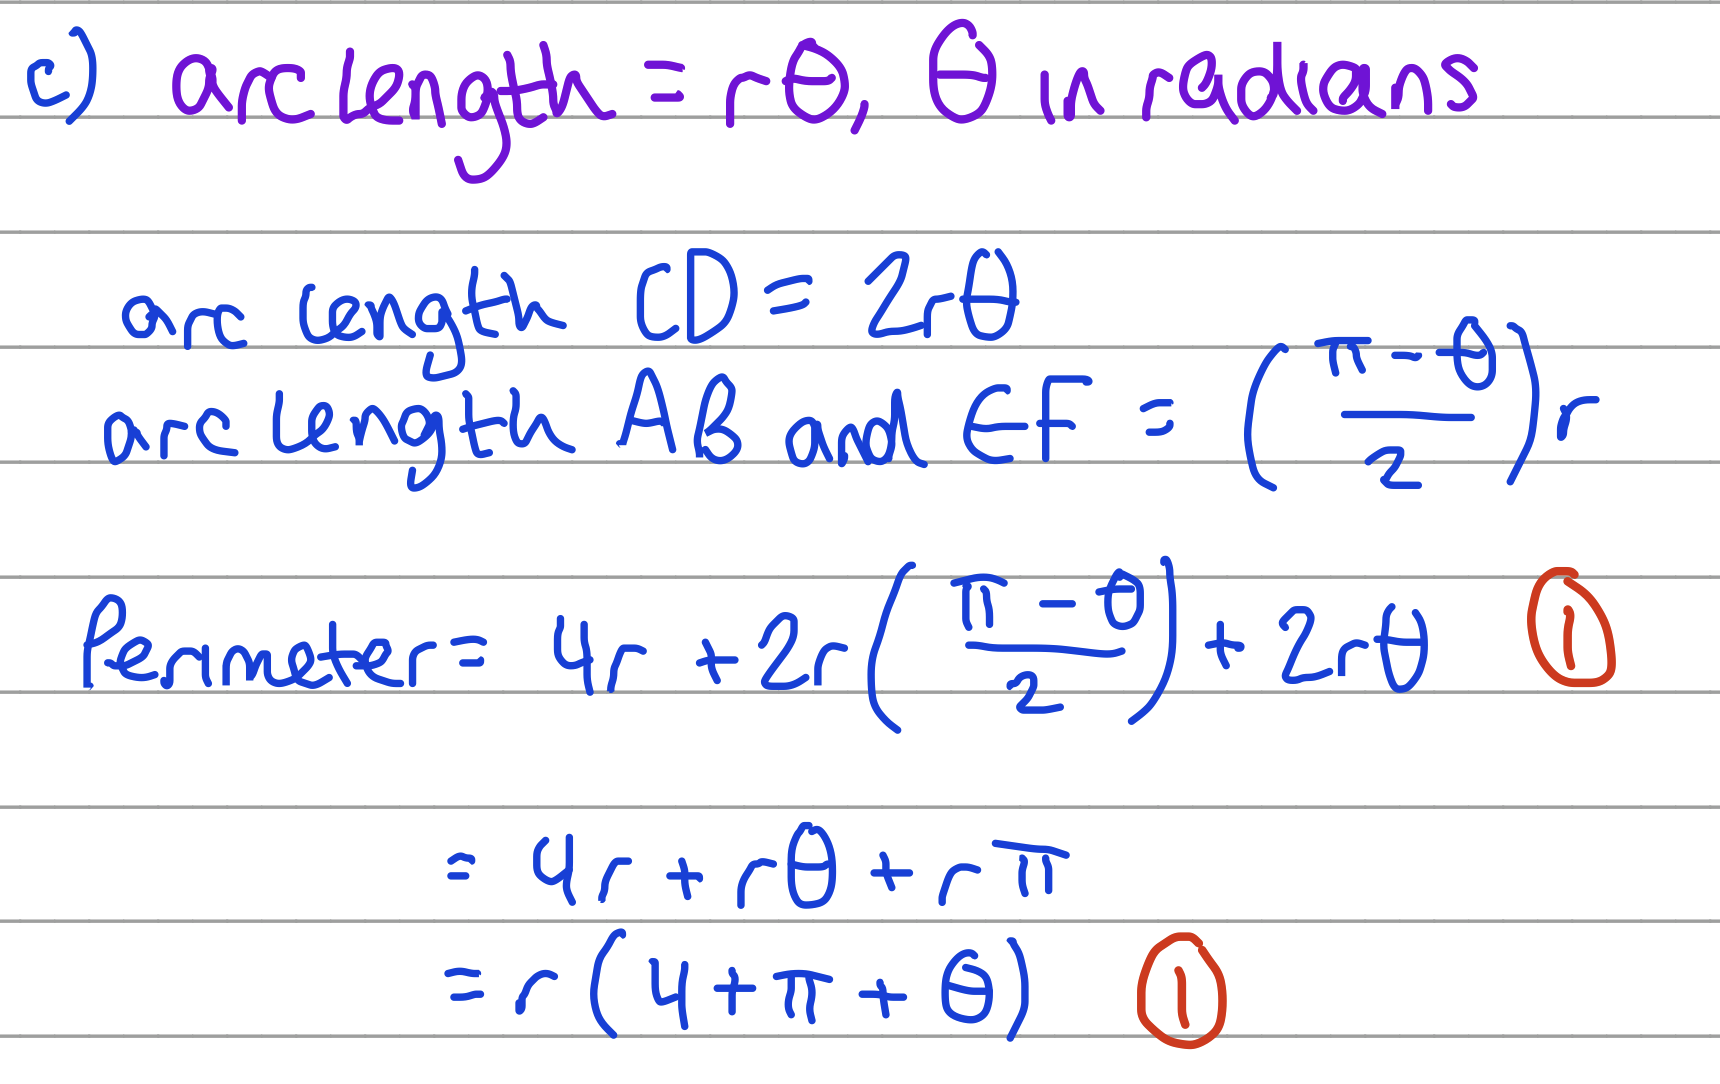 c) arc length = rθ, θ in radians
arc length CD = 2rθ
arc length AB and EF = ((π - θ)/2) r
Perimeter = 4r + 2r((π - θ)/2) + 2rθ ①
= 4r + rθ + rπ
= r(4 + π + θ) ①